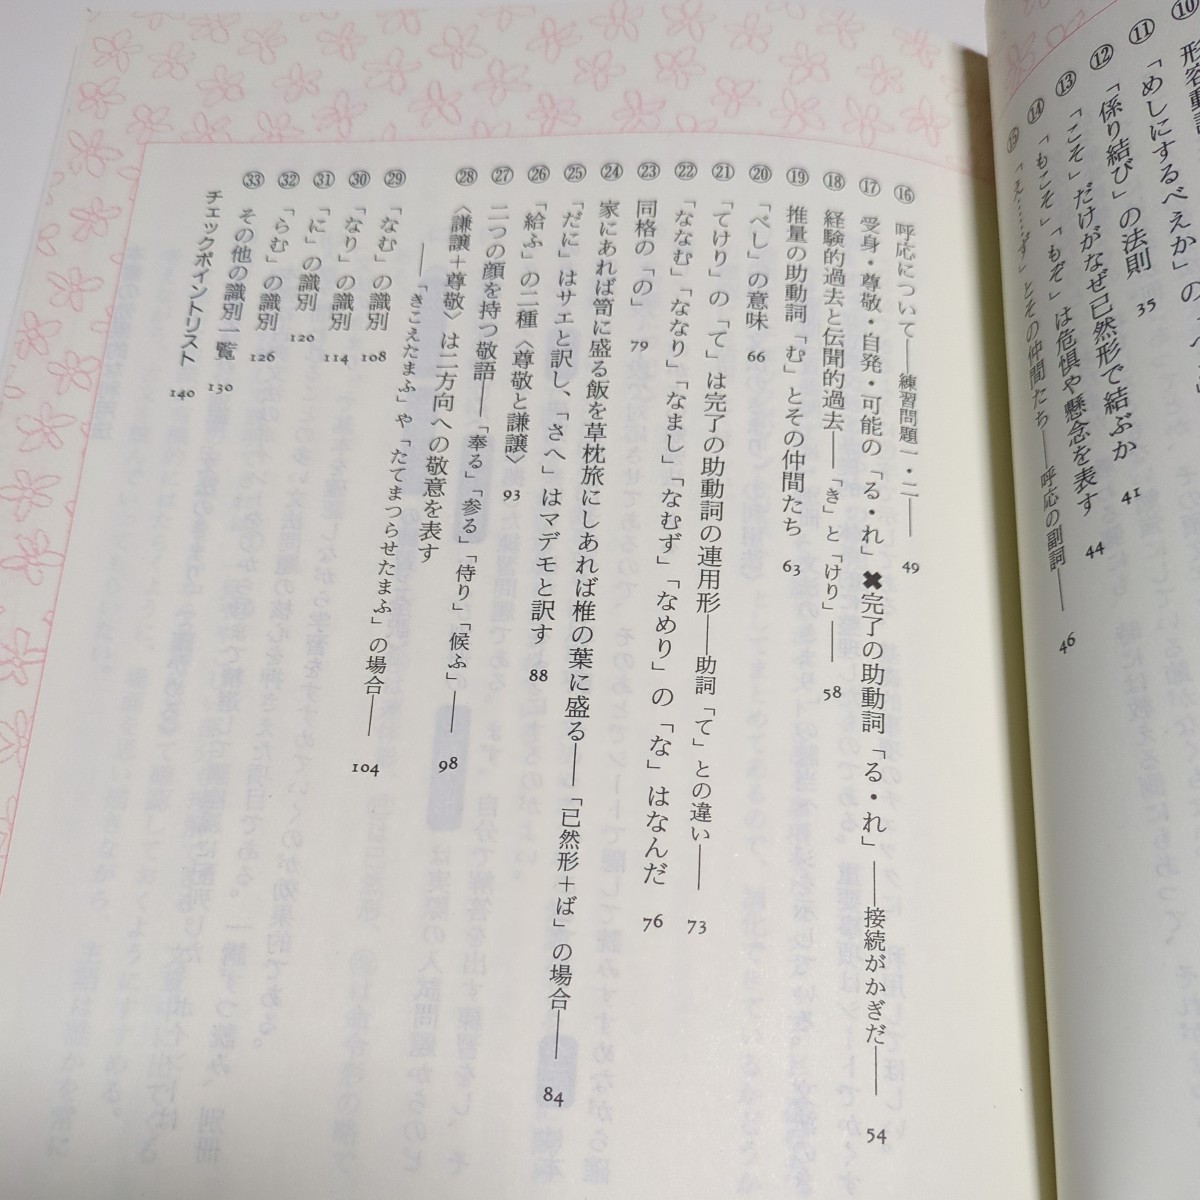 ⑪「めしにするべえか」の
⑫「係り結び」の法則 35
⑬「こそ」だけがなぜ已然形で結ぶか 41
⑭「もこそ」「もぞ」は危惧や懸念を表す 44
⑮「え……ず」とその仲間たち——呼応の副詞—— 46
⑯ 呼応について——練習問題一・二—— 49
⑰ 受身・尊敬・自発・可能の「る・れ」✖完了の助動詞「る・れ」——接続がかぎだ—— 54
⑱ 経験的過去と伝聞的過去——「き」と「けり」—— 58
⑲ 推量の助動詞「む」とその仲間たち 63
⑳「べし」の意味 66
㉑「てけり」の「て」は完了の助動詞の連用形——助詞「て」との違い—— 73
㉒「ななむ」「ななり」「なまし」「なむず」「なめり」の「な」はなんだ 76
㉓ 同格の「の」 79
㉔ 家にあれば笥に盛る飯を草枕旅にしあれば椎の葉に盛る——「已然形＋ば」の場合—— 84
㉕「だに」はサエと訳し、「さへ」はマデモと訳す 88
㉖「給ふ」の二種〈尊敬と謙譲〉 93
㉗ 二つの顔を持つ敬語——「奉る」「参る」「侍り」「候ふ」—— 98
㉘〈謙譲＋尊敬〉は二方向への敬意を表す
——「きこえたまふ」や「たてまつらせたまふ」の場合—— 104
㉙「なむ」の識別 108
㉚「なり」の識別 114
㉛「に」の識別 120
㉜「らむ」の識別 126
㉝ その他の識別一覧 130
チェックポイントリスト 140